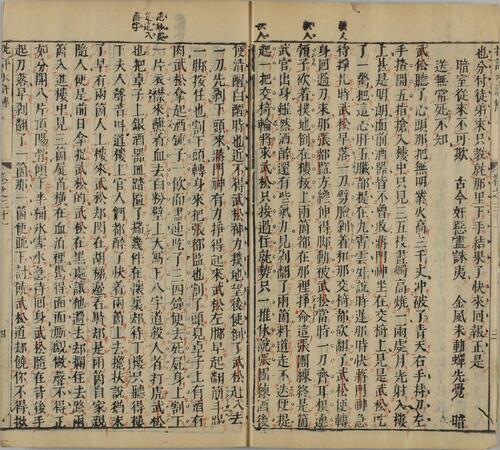 也分付徒弟來只敎就那里下手結果了快來回報正是
暗室從來不可欺　古今奸惡盡誅夷　金風未動蟬先覺　暗
送無常死不知
武松聽了心頭那把無明業火高三千丈冲破了青天右手持刀左
手揸開五指搶入樓中只見三五枝畫燭高燒一兩處月光射入樓
上甚是明朗面前酒器皆不曾收蔣門神坐在交椅上見是武松吃
了一驚把這心肝五臓都提在九霄雲外說時遲那時快蔣門神急
待挣扎時武松早落一刀劈臉剁着和那交椅都砍翻了武松便轉
身回過刀來那張都監方纔伸得脚動被武松當時一刀齊耳根連
頸子砍着撲地倒在樓板上兩個都在那里挣命這張團練終是箇
武官出身雖然酒醉還有些氣力見剁翻了兩箇料道走不迭便提
起一把交椅輪將來武松早接過住就勢只一推休說張團練酒後
便清醒白醒時也近不得武松神力撲地望後便倒武松趕入去
一刀先剁下頭來蔣門神有力挣得起來武松左脚早起翻筋斗踢
一脚按住也割了頭轉身來把張都監也割了頭見卓子上有酒有
肉武松拿起酒鍾子一飲而盡連吃了三四鍾便去死屍身上割下
一片衣襟來蘸着血去白粉壁上大寫下八字道殺人者打虎武松
也把卓子上銀酒器皿踏匾了揣幾件在懷裏却待下樓只聽得樓
下夫人聲音叫道樓上官人們都醉了快着兩箇上去攙扶說猶未
了早有兩箇人上樓來武松却閃在胡梯邊看時却是兩箇自家親
隨人便是前日拿捉武松的武松在黑處讓他過去却攔住去路兩
箇入進樓中見三箇屍首橫在血泊裡驚得面面厮覷做聲不得正
如分開八片頂陽骨傾下半桶氷雪水急待回身武松隨在背後手
起刀落早剁翻了一箇那一箇便跪下討饒武松道却饒你不得揪
四